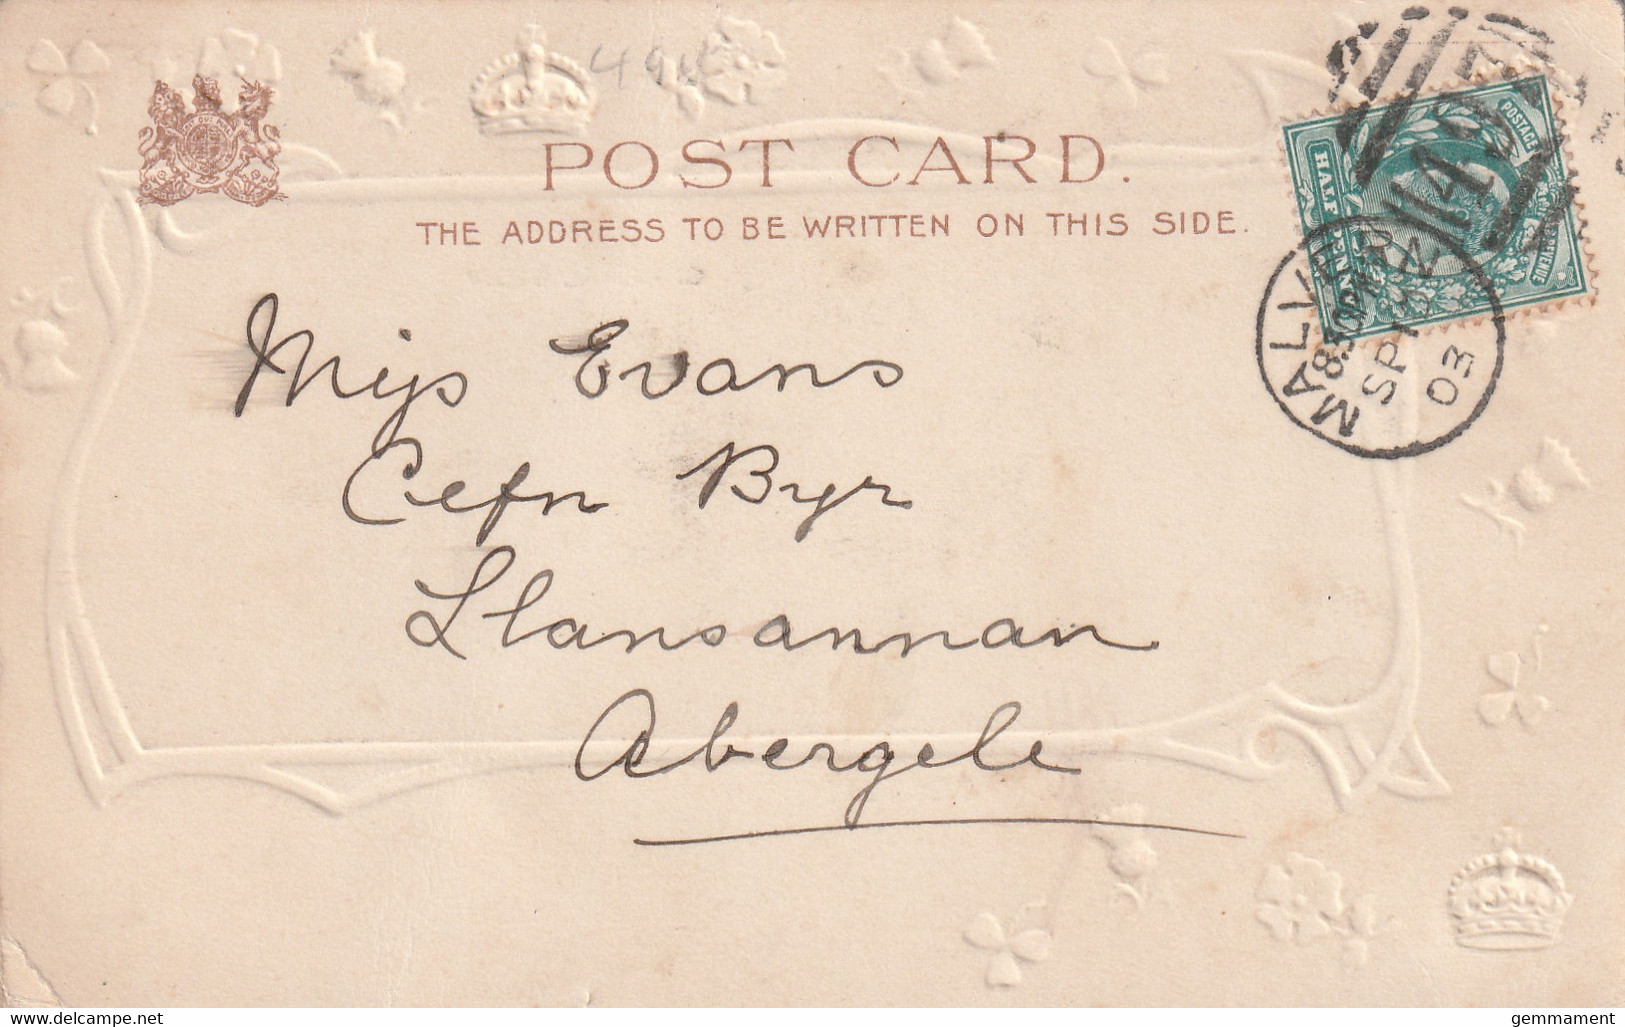 494
POST CARD.
THE ADDRESS TO BE WRITTEN ON THIS SIDE.
POSTAGE
HALF
MALVERN
8.50PM
SP
03
Miss Evans
Cefn Byr
Llansannan
Abergele
www.delcampe.net
gemmament